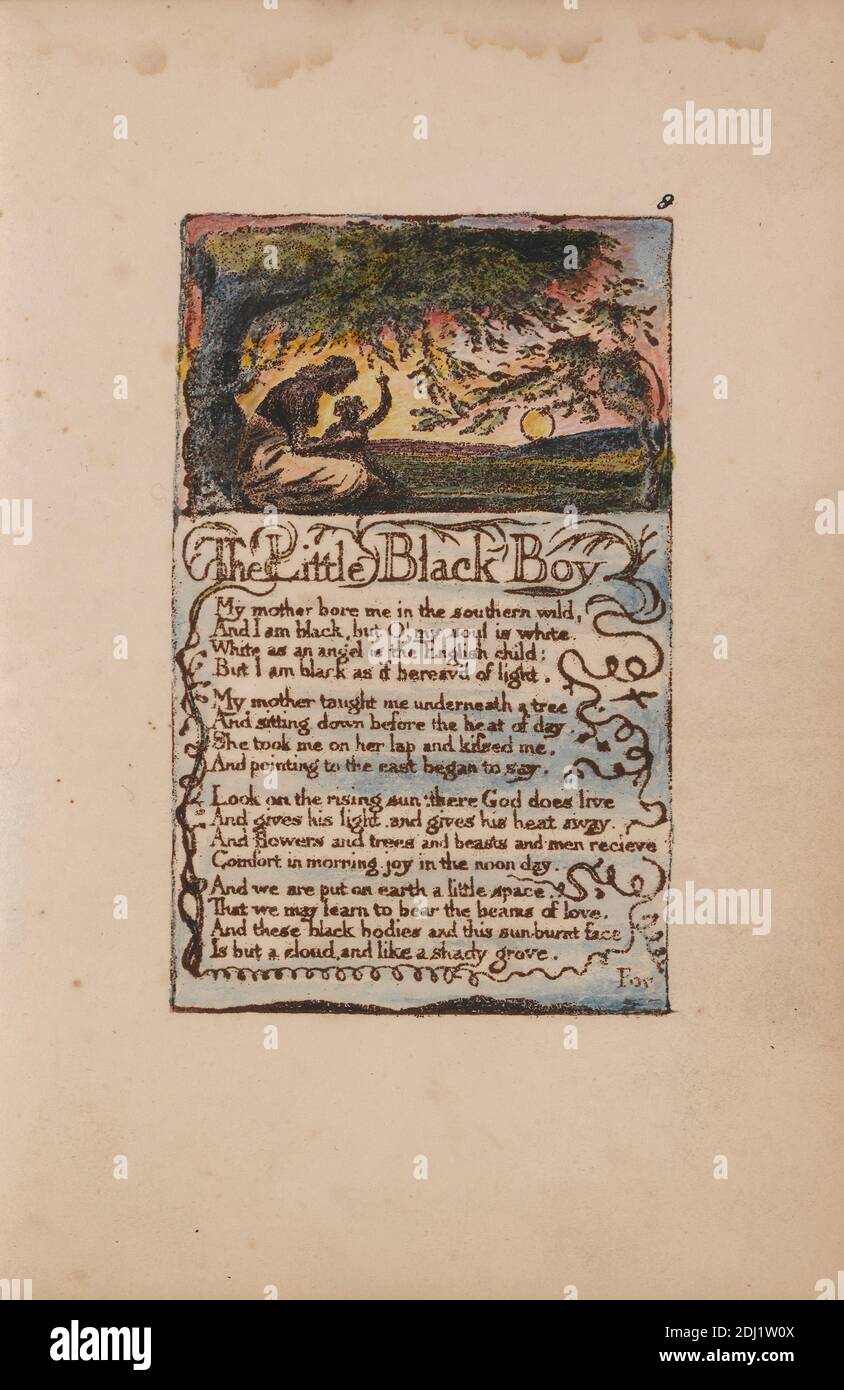 8
The Little Black Boy
My mother bore me in the southern wild,
And I am black, but O! my soul is white.
White as an angel is the English child:
But I am black as if bereav'd of light.
My mother taught me underneath a tree
And sitting down before the heat of day.
She took me on her lap and kissed me,
And pointing to the east began to say.
Look on the rising sun: there God does live
And gives his light, and gives his heat away.
And flowers and trees and beasts and men recieve
Comfort in morning joy in the noon day.
And we are put on earth a little space,
That we may learn to bear the beams of love.
And these black bodies and this sun-burnt face
Is but a cloud, and like a shady grove.
For
a alamy
alamy
Image ID: 2DJ1W0X
www.alamy.com